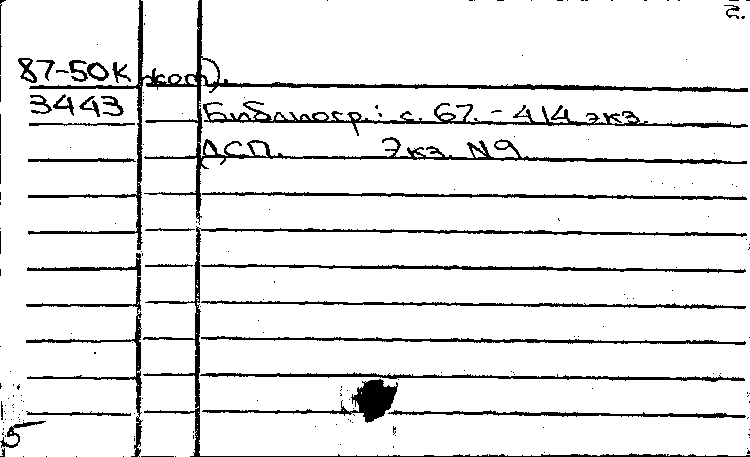 2.
87-50К жот).
3443 Библиогр.: с. 67. - 414 экз.
ДСП. Экз. N9
5